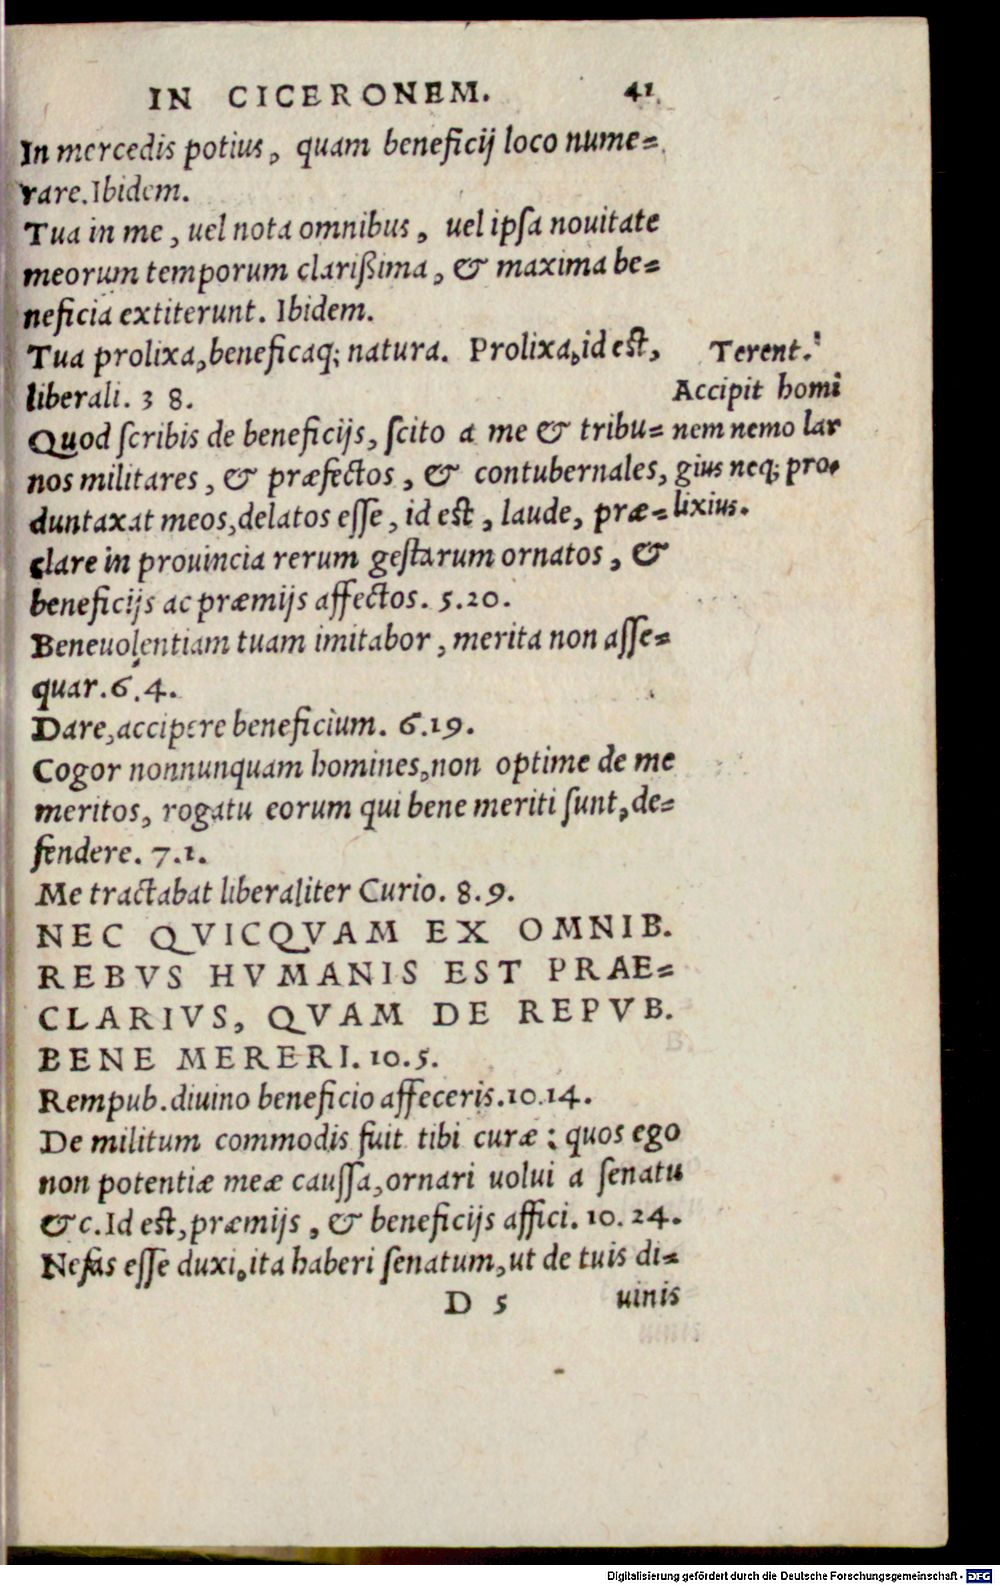 IN CICERONEM. 41
In mercedis potius, quam beneficij loco nume-
rare. Ibidem.
Tua in me, uel nota omnibus, uel ipſa nouitate
meorum temporum clarißima, & maxima be-
neficia extiterunt. Ibidem.
Tua prolixa, beneficaq; natura. Prolixa, id est,
liberali. 3 8.
Quod ſcribis de beneficijs, ſcito a me & tribu-
nos militares, & præfectos, & contubernales,
duntaxat meos, delatos eſſe, id est, laude, præ-
clare in prouincia rerum geſtarum ornatos, &
beneficijs ac præmijs affectos. 5.20.
Beneuolentiam tuam imitabor, merita non aſſe-
quar. 6.4.
Dare, accipere beneficium. 6.19.
Cogor nonnunquam homines, non optime de me
meritos, rogatu eorum qui bene meriti ſunt, de-
fendere. 7.1.
Me tractabat liberaliter Curio. 8.9.
NEC QVICQVAM EX OMNIB.
REBVS HVMANIS EST PRAE-
CLARIVS, QVAM DE REPVB.
BENE MERERI. 10.5.
Rempub. diuino beneficio affeceris. 10.14.
De militum commodis fuit tibi curæ: quos ego
non potentiæ meæ cauſſa, ornari uolui a ſenatu
&c. Id est, præmijs, & beneficijs affici. 10.24.
Nefas eſſe duxi, ita haberi ſenatum, ut de tuis di-
D 5 uinis
Terent.
Accipit homi
nem nemo lar
gius neq; pro-
lixius.
Digitalisierung gefördert durch die Deutsche Forschungsgemeinschaft - DFG